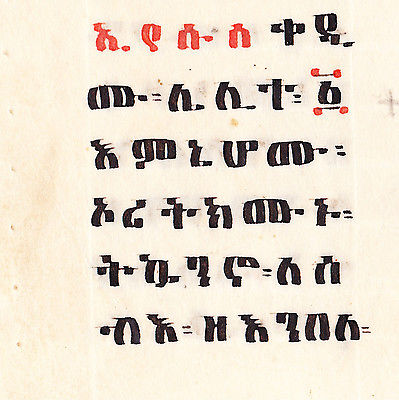 ኢየሱስ ቀዲ
ሙ፡ ሊሊተ፡ ፩
እምኒሆሙ፡
ኦሪትክሙኑ፡
ትኴንኖ፡ ለሰ
ብእ፡ ዘእንበለ፡